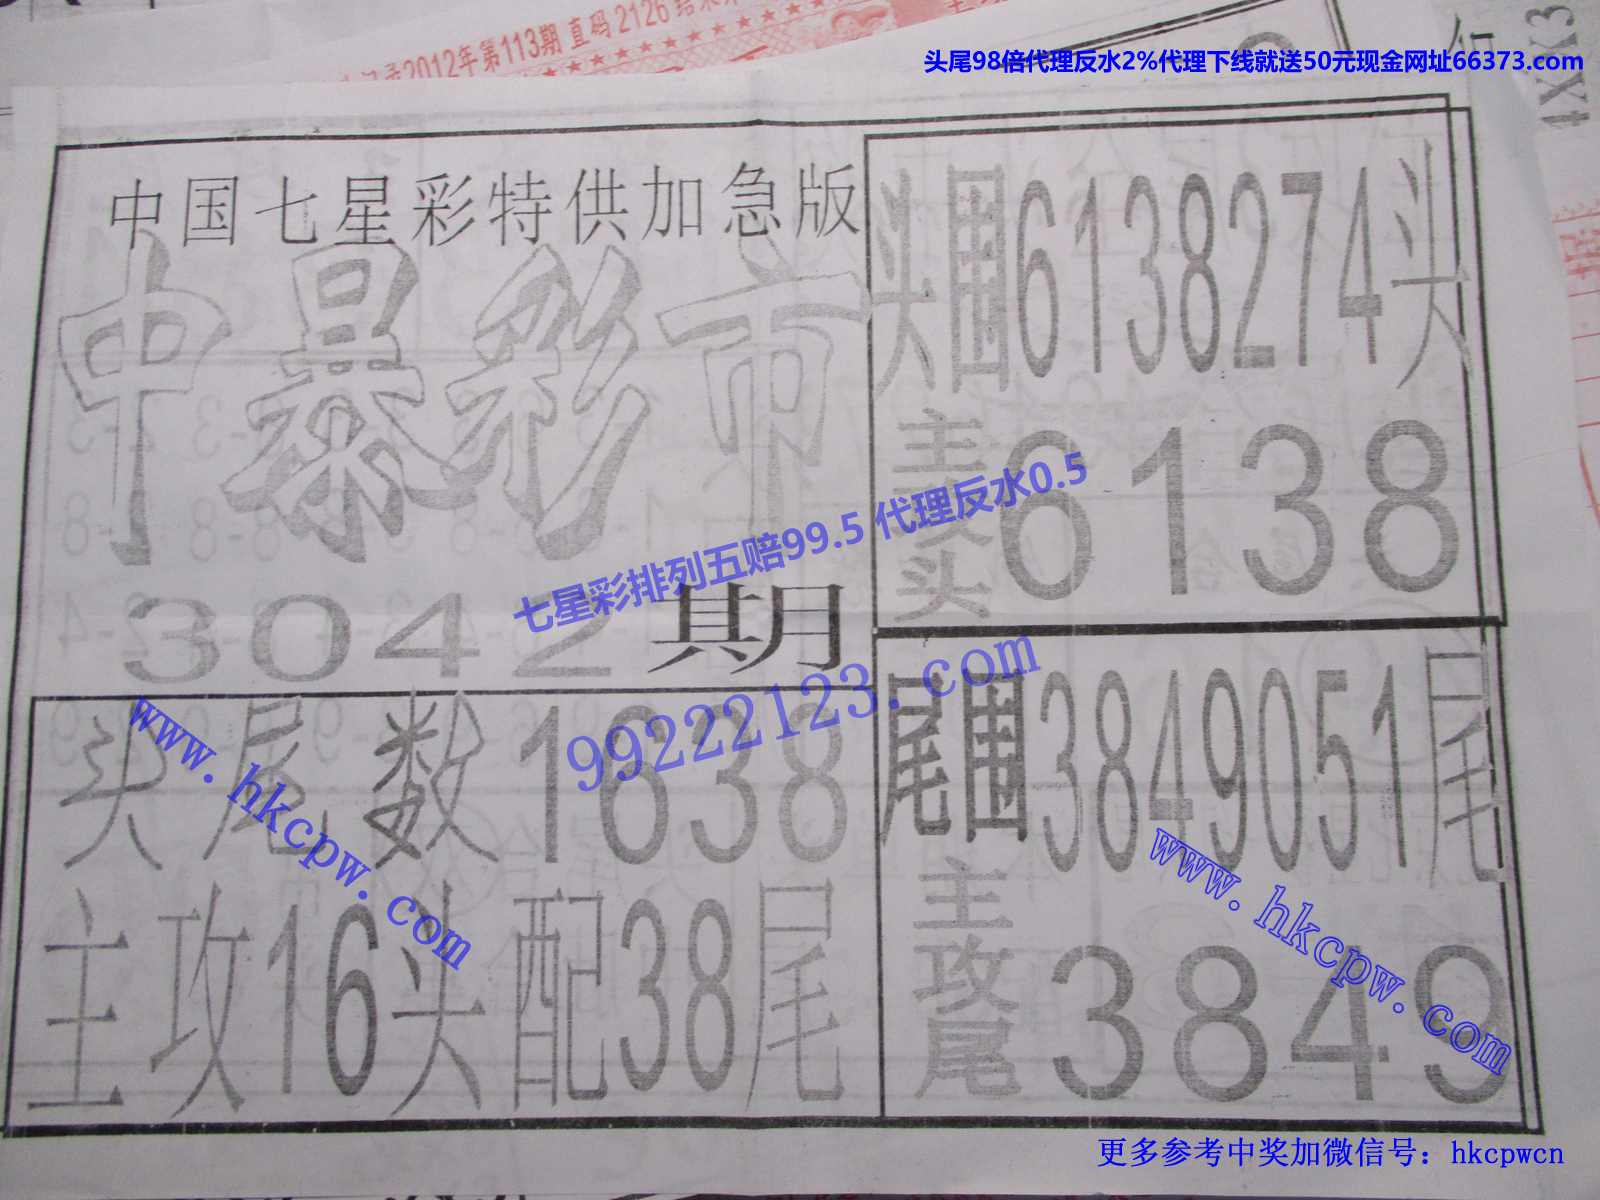 录2012年第113期 直码 2126 结
头尾98倍代理反水2%代理下线就送50元现金网址66373.com
4XX3
中国七星彩特供加急版
中暴彩市
3042期
头围6138274头
主攻头 6138
七星彩排列五赔99.5 代理反水0.5
99222123.com
头尾数1638
主攻16头配38尾
尾围3849051尾
主攻尾 3849
www.hkcpw.com
www.hkcpw.com
更多参考中奖加微信号：hkcpwcn